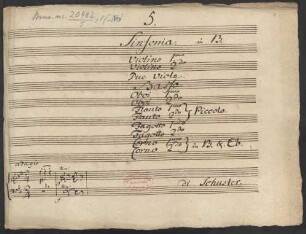 Mus. ms. 20462
5.
Sinfonia in B.
Violino 1mo
Violino 2do
Due Viole
Basso
Oboe 1mo
Oboe 2do
Flauto 1mo
Flauto 2do } Piccolo
Fagotto 1mo
Fagotto 2do
Corno 1mo
Corno 2do } in B. & Eb.
adagio
di Schuster.